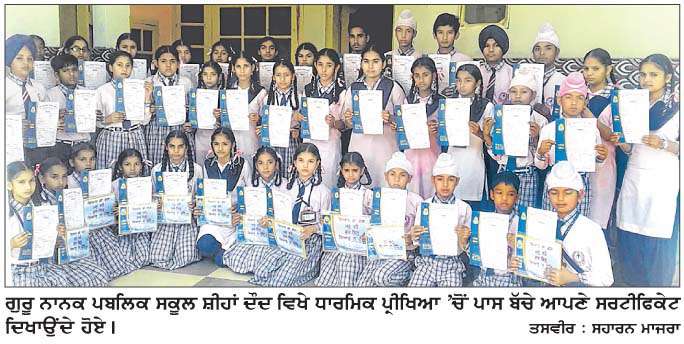 ਗੁਰੂ ਨਾਨਕ ਪਬਲਿਕ ਸਕੂਲ ਸ਼ੀਹਾਂ ਦੌਦ ਵਿਖੇ ਧਾਰਮਿਕ ਪ੍ਰੀਖਿਆ ’ਚੋਂ ਪਾਸ ਬੱਚੇ ਆਪਣੇ ਸਰਟੀਫਿਕੇਟ
ਦਿਖਾਉਂਦੇ ਹੋਏ। ਤਸਵੀਰ : ਸਹਾਰਨ ਮਾਜਰਾ